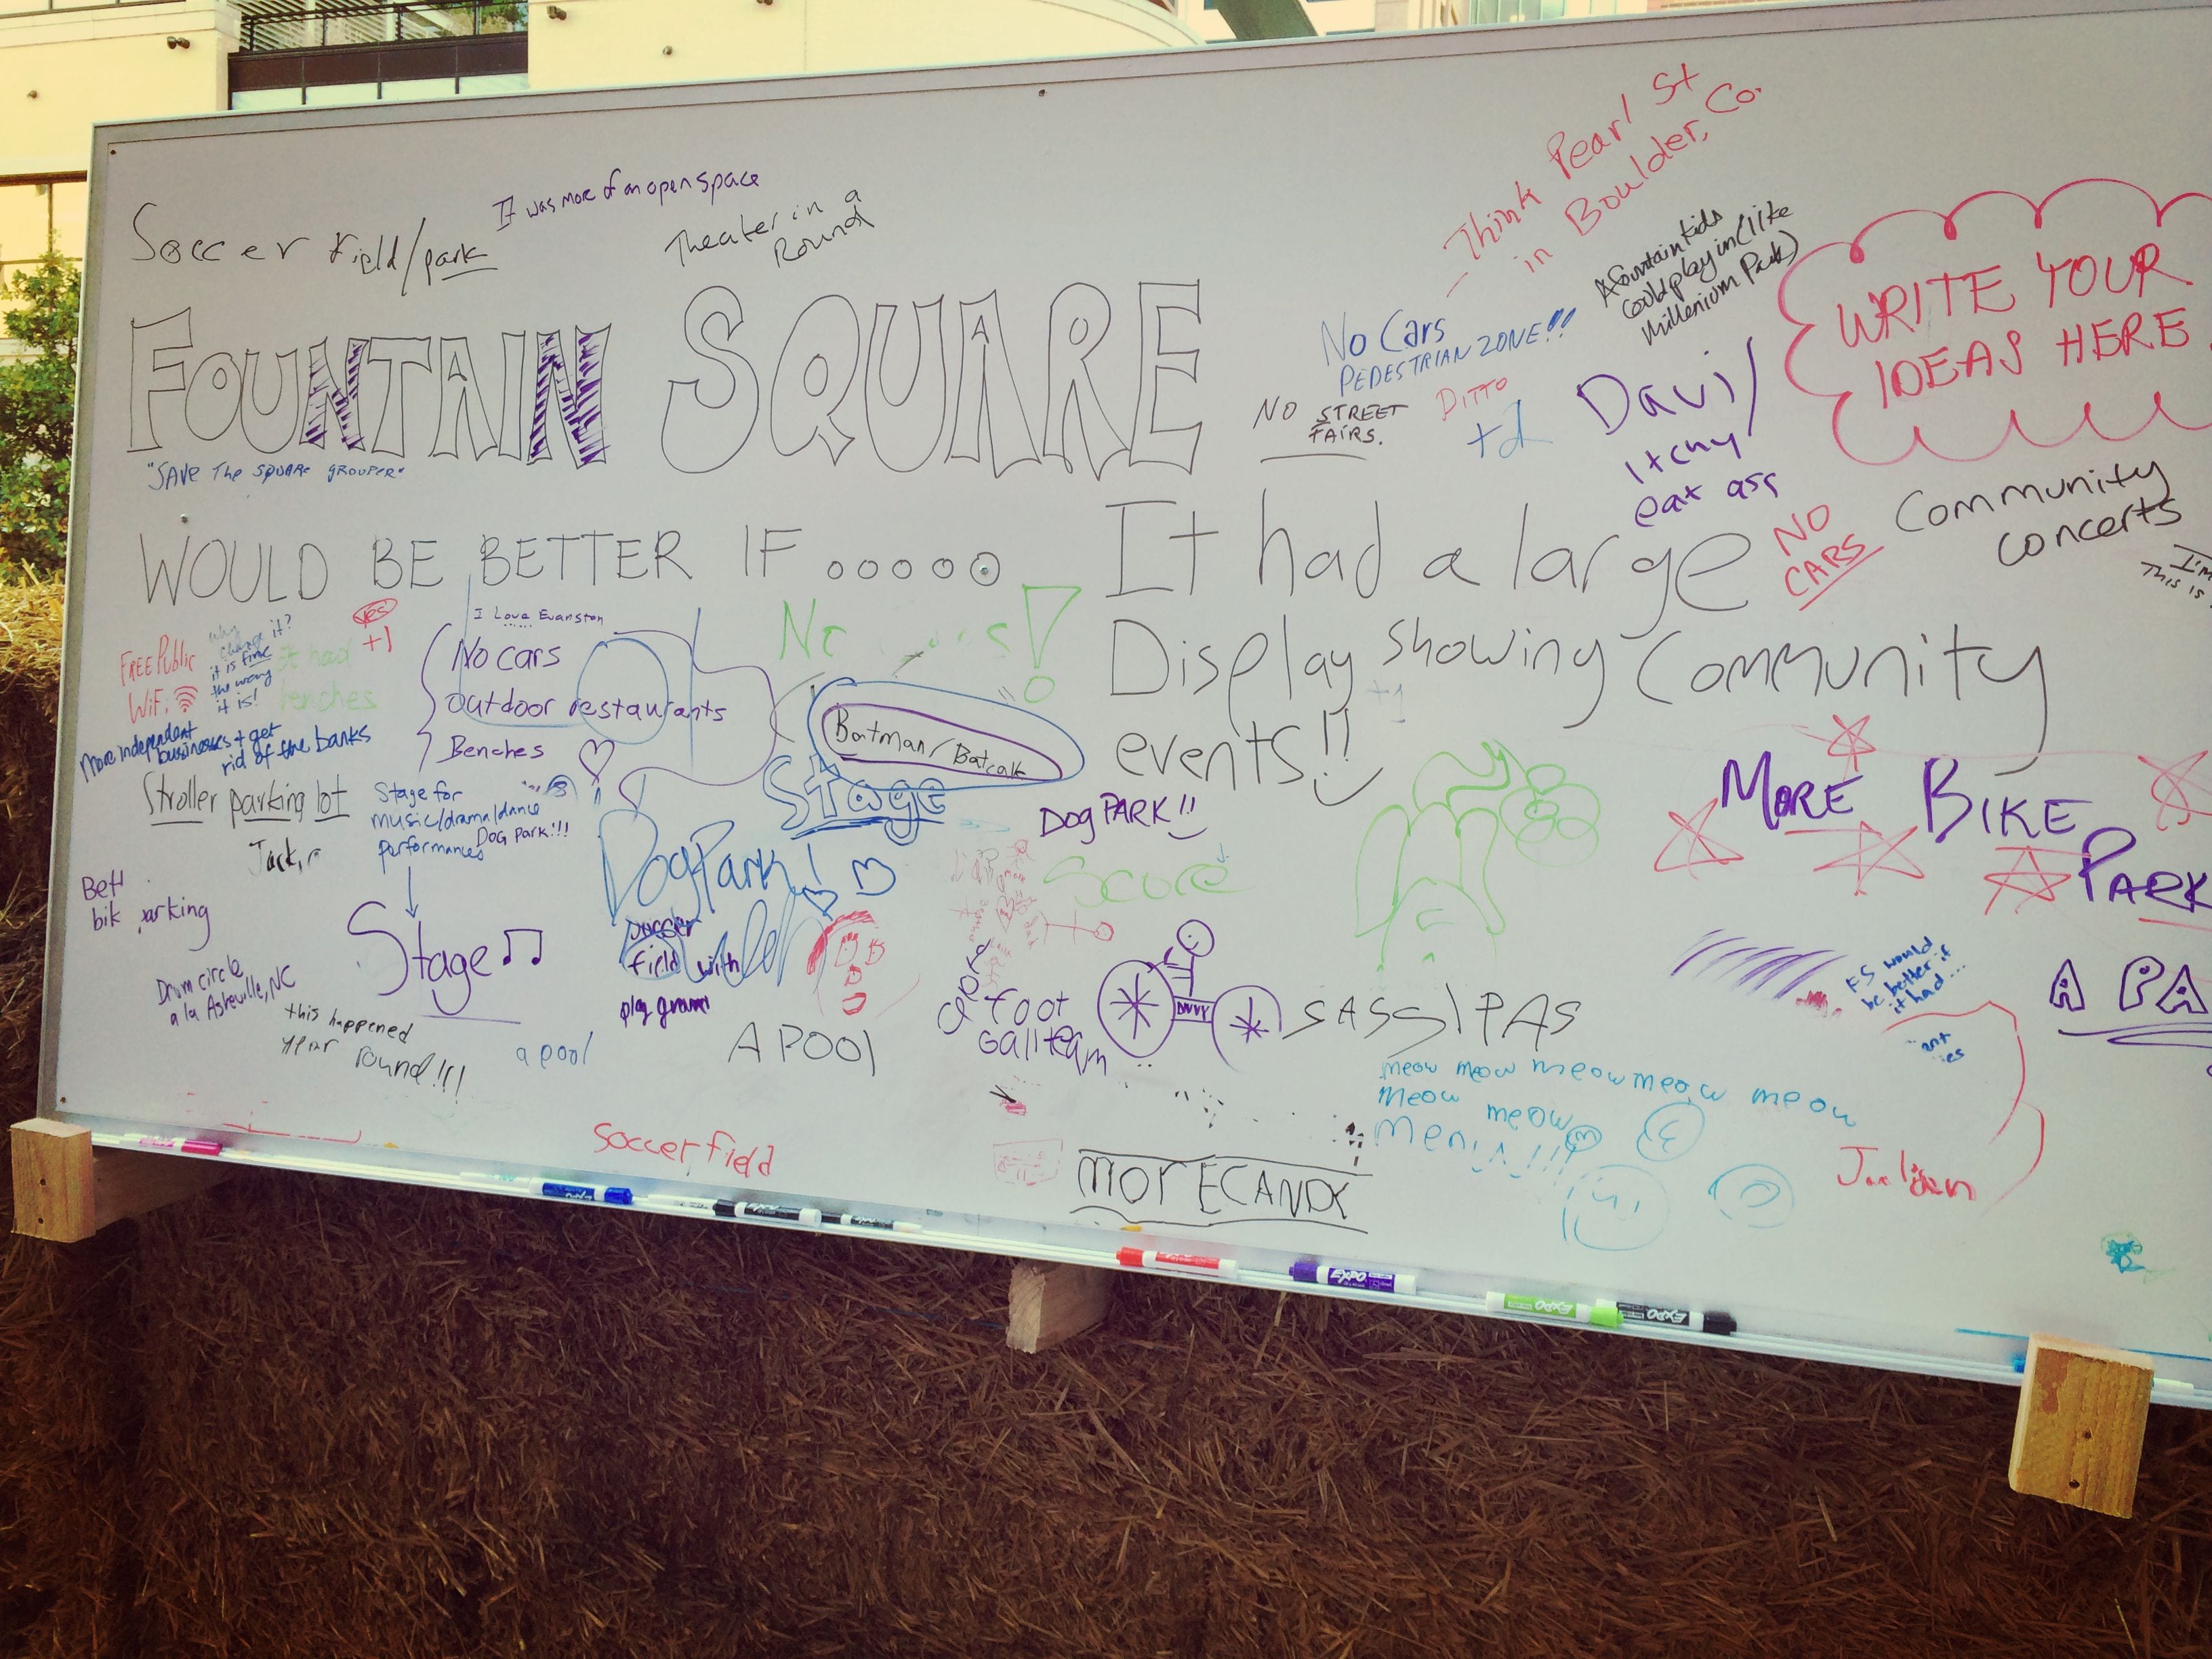 Soccer field/park
It was more of an open space
Theater in a
Round
Think Pearl St
in Boulder, Co.
A fountain kids
could play in (like
Millenium Park)
WRITE YOUR
IDEAS HERE
FOUNTAIN SQUARE
"SAVE THE SQUARE GROUPER"
No Cars
PEDESTRIAN ZONE!!!
DITTO
NO STREET
FAIRS.
Itchy
eat ass
WOULD BE BETTER IF .....
It had a large
Display showing Community
events!!
NO
CARS
Community
concerts
I'm
This is
FREE Public
WiFi
why
change it?
it is fine
the way
it is!
it had
benches
yes
+1
I Love Evanston
No cars
outdoor restaurants
Benches
More independent
businesses + get
rid of the banks
Batman/Batcalk
Stage
Dog PARK!!
MORE BIKE
PARK
Stroller parking lot
Stage for
music/drama/dance
performances
DOG Park!!!
Dog Park!
Score
bik parking
Stage
Soccer
field with
play ground
Drum circle
a la Asheville, NC
this happened
year round!!!
a pool
A POOl
foot
SASS\PAS
FS would
be better if
it had...
A PA
meow meow meow meow meow
meow meow
soccer field
morE CANDY